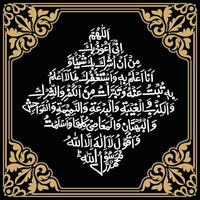 اَللّٰهُمَّ
اِنِّیْ اَعُوْذُ بِكَ
مِنْ اَنْ اُشْرِكَ بِكَ شَيْئًا وَّ
اَنَا اَعْلَمُ بِهٖ وَاَسْتَغْفِرُكَ لِمَا لَا اَعْلَمُ
بِهٖ تُبْتُ عَنْهُ وَتَبَرَّأْتُ مِنَ الْكُفْرِ وَالشِّرْكِ
وَالْكِذْبِ وَالْغِيْبَةِ وَالْبِدْعَةِ وَالنَّمِيْمَةِ وَالْفَوَاحِشِ
وَالْبُهْتَانِ وَالْمَعَاصِیْ كُلِّهَا وَاَسْلَمْتُ
وَاَقُوْلُ لَا اِلٰهَ اِلَّا اللّٰهُ
مُحَمَّدٌ رَّسُوْلُ اللّٰهِ